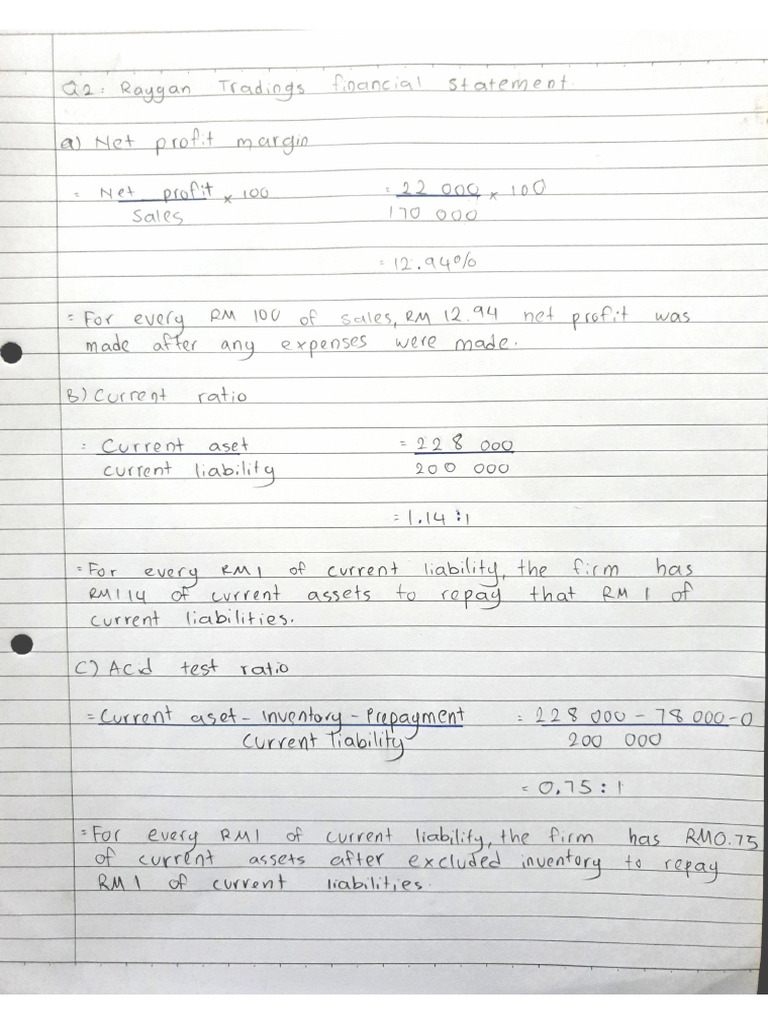 Q2: Raygan Tradings financial statement.
a) Net profit margin
= Net profit × 100 = 22 000 × 100
Sales 170 000
= 12.94%
= For every RM 100 of sales, RM 12.94 net profit was
made after any expenses were made.
B) Current ratio
= Current aset = 228 000
current liability 200 000
= 1.14 : 1
= For every RM1 of current liability, the firm has
RM1.14 of current assets to repay that RM 1 of
current liabilities.
C) Acid test ratio
= Current aset - Inventory - Prepayment = 228 000 - 78 000 - 0
Current liability 200 000
= 0.75 : 1
= For every RM1 of current liability, the firm has RM0.75
of current assets after excluded inventory to repay
RM 1 of current liabilities.